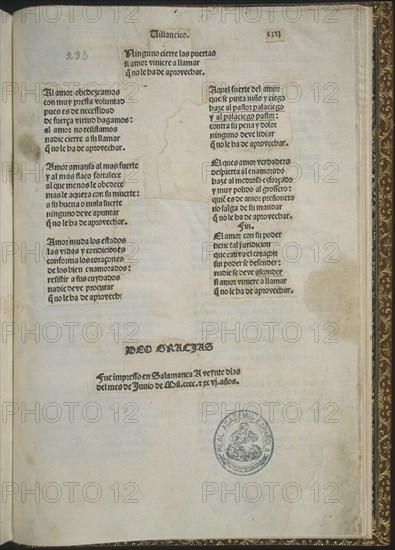 Uillancico.
cxvj
293
Ninguno cierre las puertas
si amor viniere a llamar
q̃ no le ha de aprouechar.
Al amor obedezcamos
con muy presta voluntad
pues es de necessidad
de fuerça virtud hagamos:
al amor no resistamos
nadie cierre a su llamar
q̃ no le ha de aprouechar.
Amor amansa al mas fuerte
y al mas flaco fortalece
al que menos le obedece
mas le aquexa con su muerte:
a su buena o mala suerte
ninguno deue apuntar
q̃ no le ha de aprouechar.
Amor muda los estados
las vidas y condiciones
conforma los coraçones
de los bien enamorados:
resistir a sus cuydados
nadie deue procurar
q̃ no le ha de aprouechr
Aquel fuerte del amor
que se pinta niño y ciego
haze al pastor palaciego
y al palaciego pastor:
contra su pena y dolor
ninguno deue lidiar
q̃ no le ha de aprouechar.
El ques amor verdadero
despierta al enamorado
haze al medroso esforçado
y muy polido al grossero:
quie es de amor prisionero
no salga de su mandar
q̃ no le ha de aprouechar.
Fin.
El amor con su poder
tiene tal juridicion
que catiua el coraçon
sin poder se defender:
nadie se deue asconder
si amor viniere a llamar
q̃ no le ha de aprouechar.
DEO GRACIAS
Fue impresso en Salamanca A veynte dias
del mes de Junio de Mil.cccc.xcvj.años.
REAL ACADEMIA ESPAÑOLA
PHOTO 12